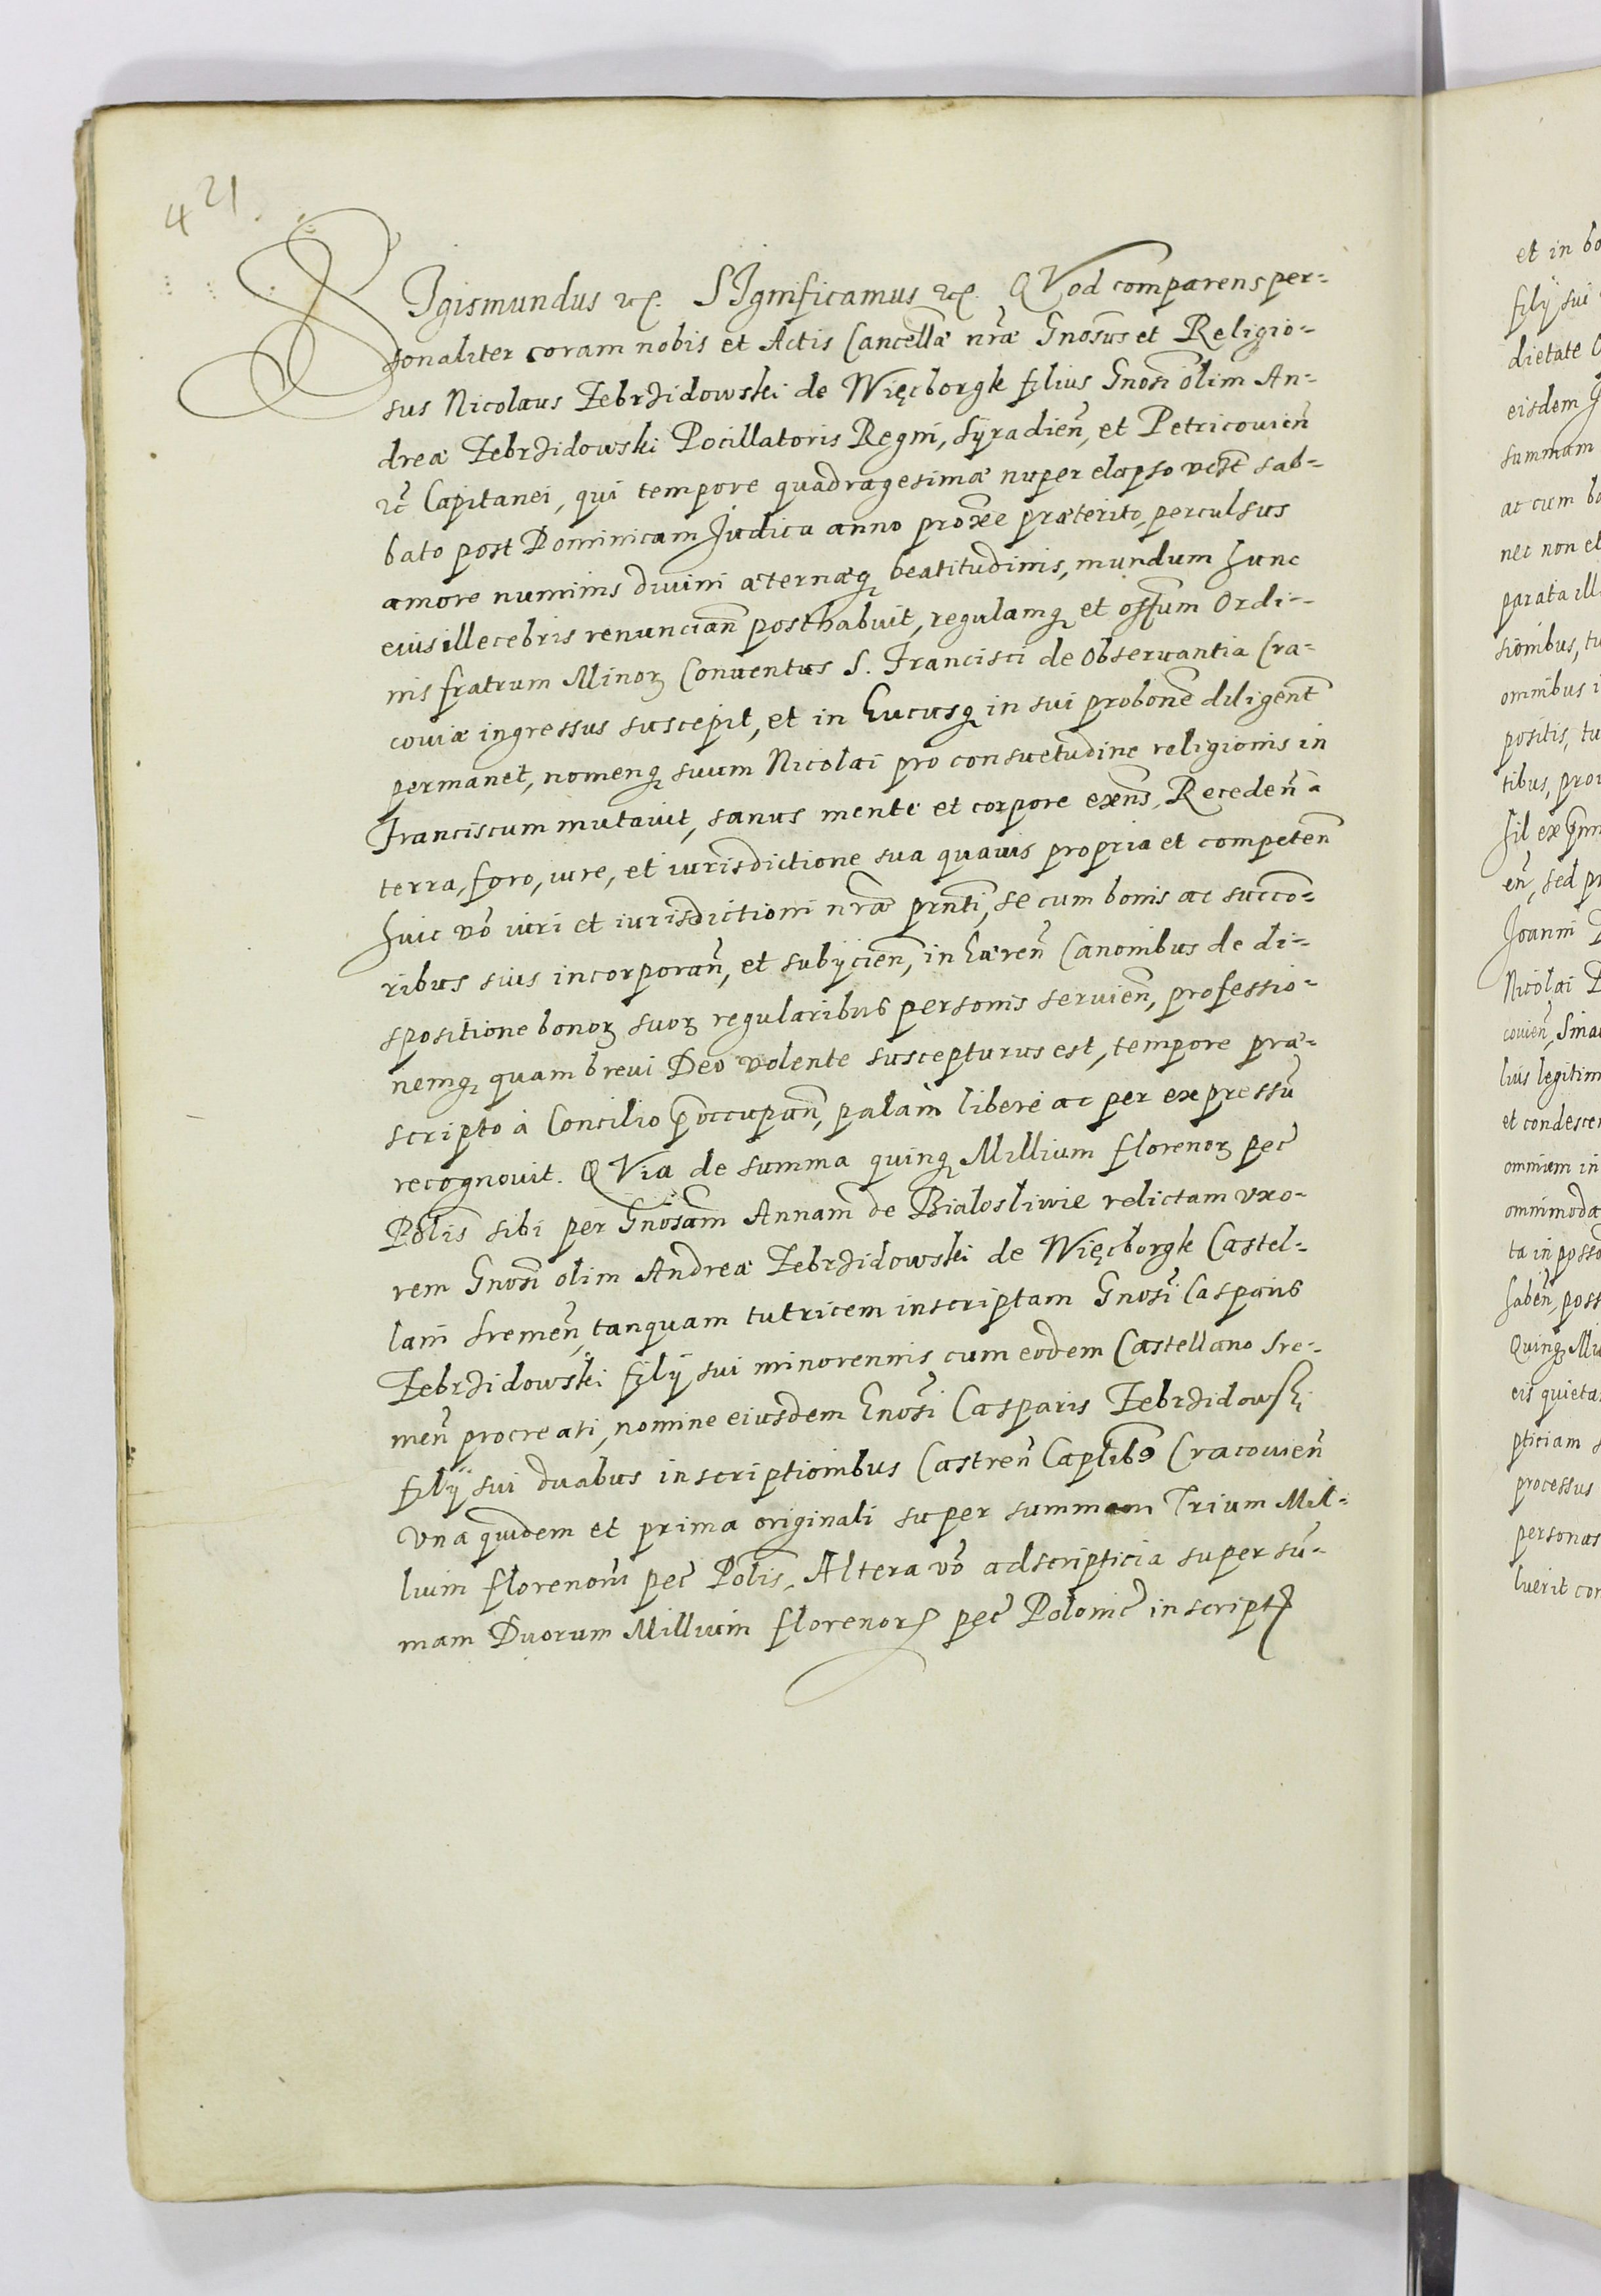 421.
SIgismundus etc. SIgnificamus etc. QVod comparens per-
sonaliter coram nobis et Actis Cancellae nrae Gnosus et Religio-
sus Nicolaus Zebrzidowski de Więcborgk filius Gnosi olim An-
dreae Zebrzidowski Pocillatoris Regni, Syradien, et Petricouien
etc Capitanei, qui tempore quadragesimae nuper elapso vest sab-
bato post Dominicam Judica anno proxe praeterito, perculsus
amore numinis diuini aeternaeq beatitudinis, mundum hunc
eius illecebris renuncian posthabuit, regulamq et offum Ordi-
nis fratrum Minoꝝ Conuentus S. Francisci de Obseruantia Cra-
couiae ingressus suscepit, et in hucusq in sui probone diligent
permanet, nomenq suum Nicolai pro consuetudine religionis in
Franciscum mutauit, sanus mente et corpore exens, Receden à
terra, foro, iure, et iurisdictione sua quauis propria et competen
huic vo iuri et iurisdictioni nrae prnti, se cum bonis ac succo-
ribus suis incorporan, et subÿcien, inhaeren Canonibus de di-
spositione bonoꝝ suoꝝ regularibus personis seruien, professio-
nemq quam breui Deo volente suscepturus est, tempore prae-
scripto à Concilio poccupan, palàm liberè ac per expressu
recognouit. QVia de summa quinq Millium florenoꝝ pec
Polis sibi per Gnosam Annam de Bialosliwie relictam vxo-
rem Gnosi olim Andreae Zebrzidowski de Więcborgk Castel-
lani Sremen, tanquam tutricem inscriptam Gnosi Casparis
Zebrzidowski filÿ sui minorennis cum eodem Castellano Sre-
men procreati, nomine eiusdem Gnosi Casparis Zebrzidowski
filÿ sui duabus inscriptionibus Castren Caplibꝰ Cracouien
vna quidem et prima originali super summam Trium Mil-
lium florenoru pec Polis, Altera vo adscripticia super su-
mam Duorum Millium florenoꝝ pec Polonic inscript
et in bo
filÿ sui
dietate
eisdem
summam
ac cum bo
nec non et
parata ill
sionibus, tu
omnibus i
positis, tu
tibus, prou
en, sed pr
Joanni
Nicolai
couien,
luis legitim
et condescen
omnium in
omnimoda
ta in posso
haben, poss
Quinq Mi
eis quieta
pticiam
processus
personas
luerit con